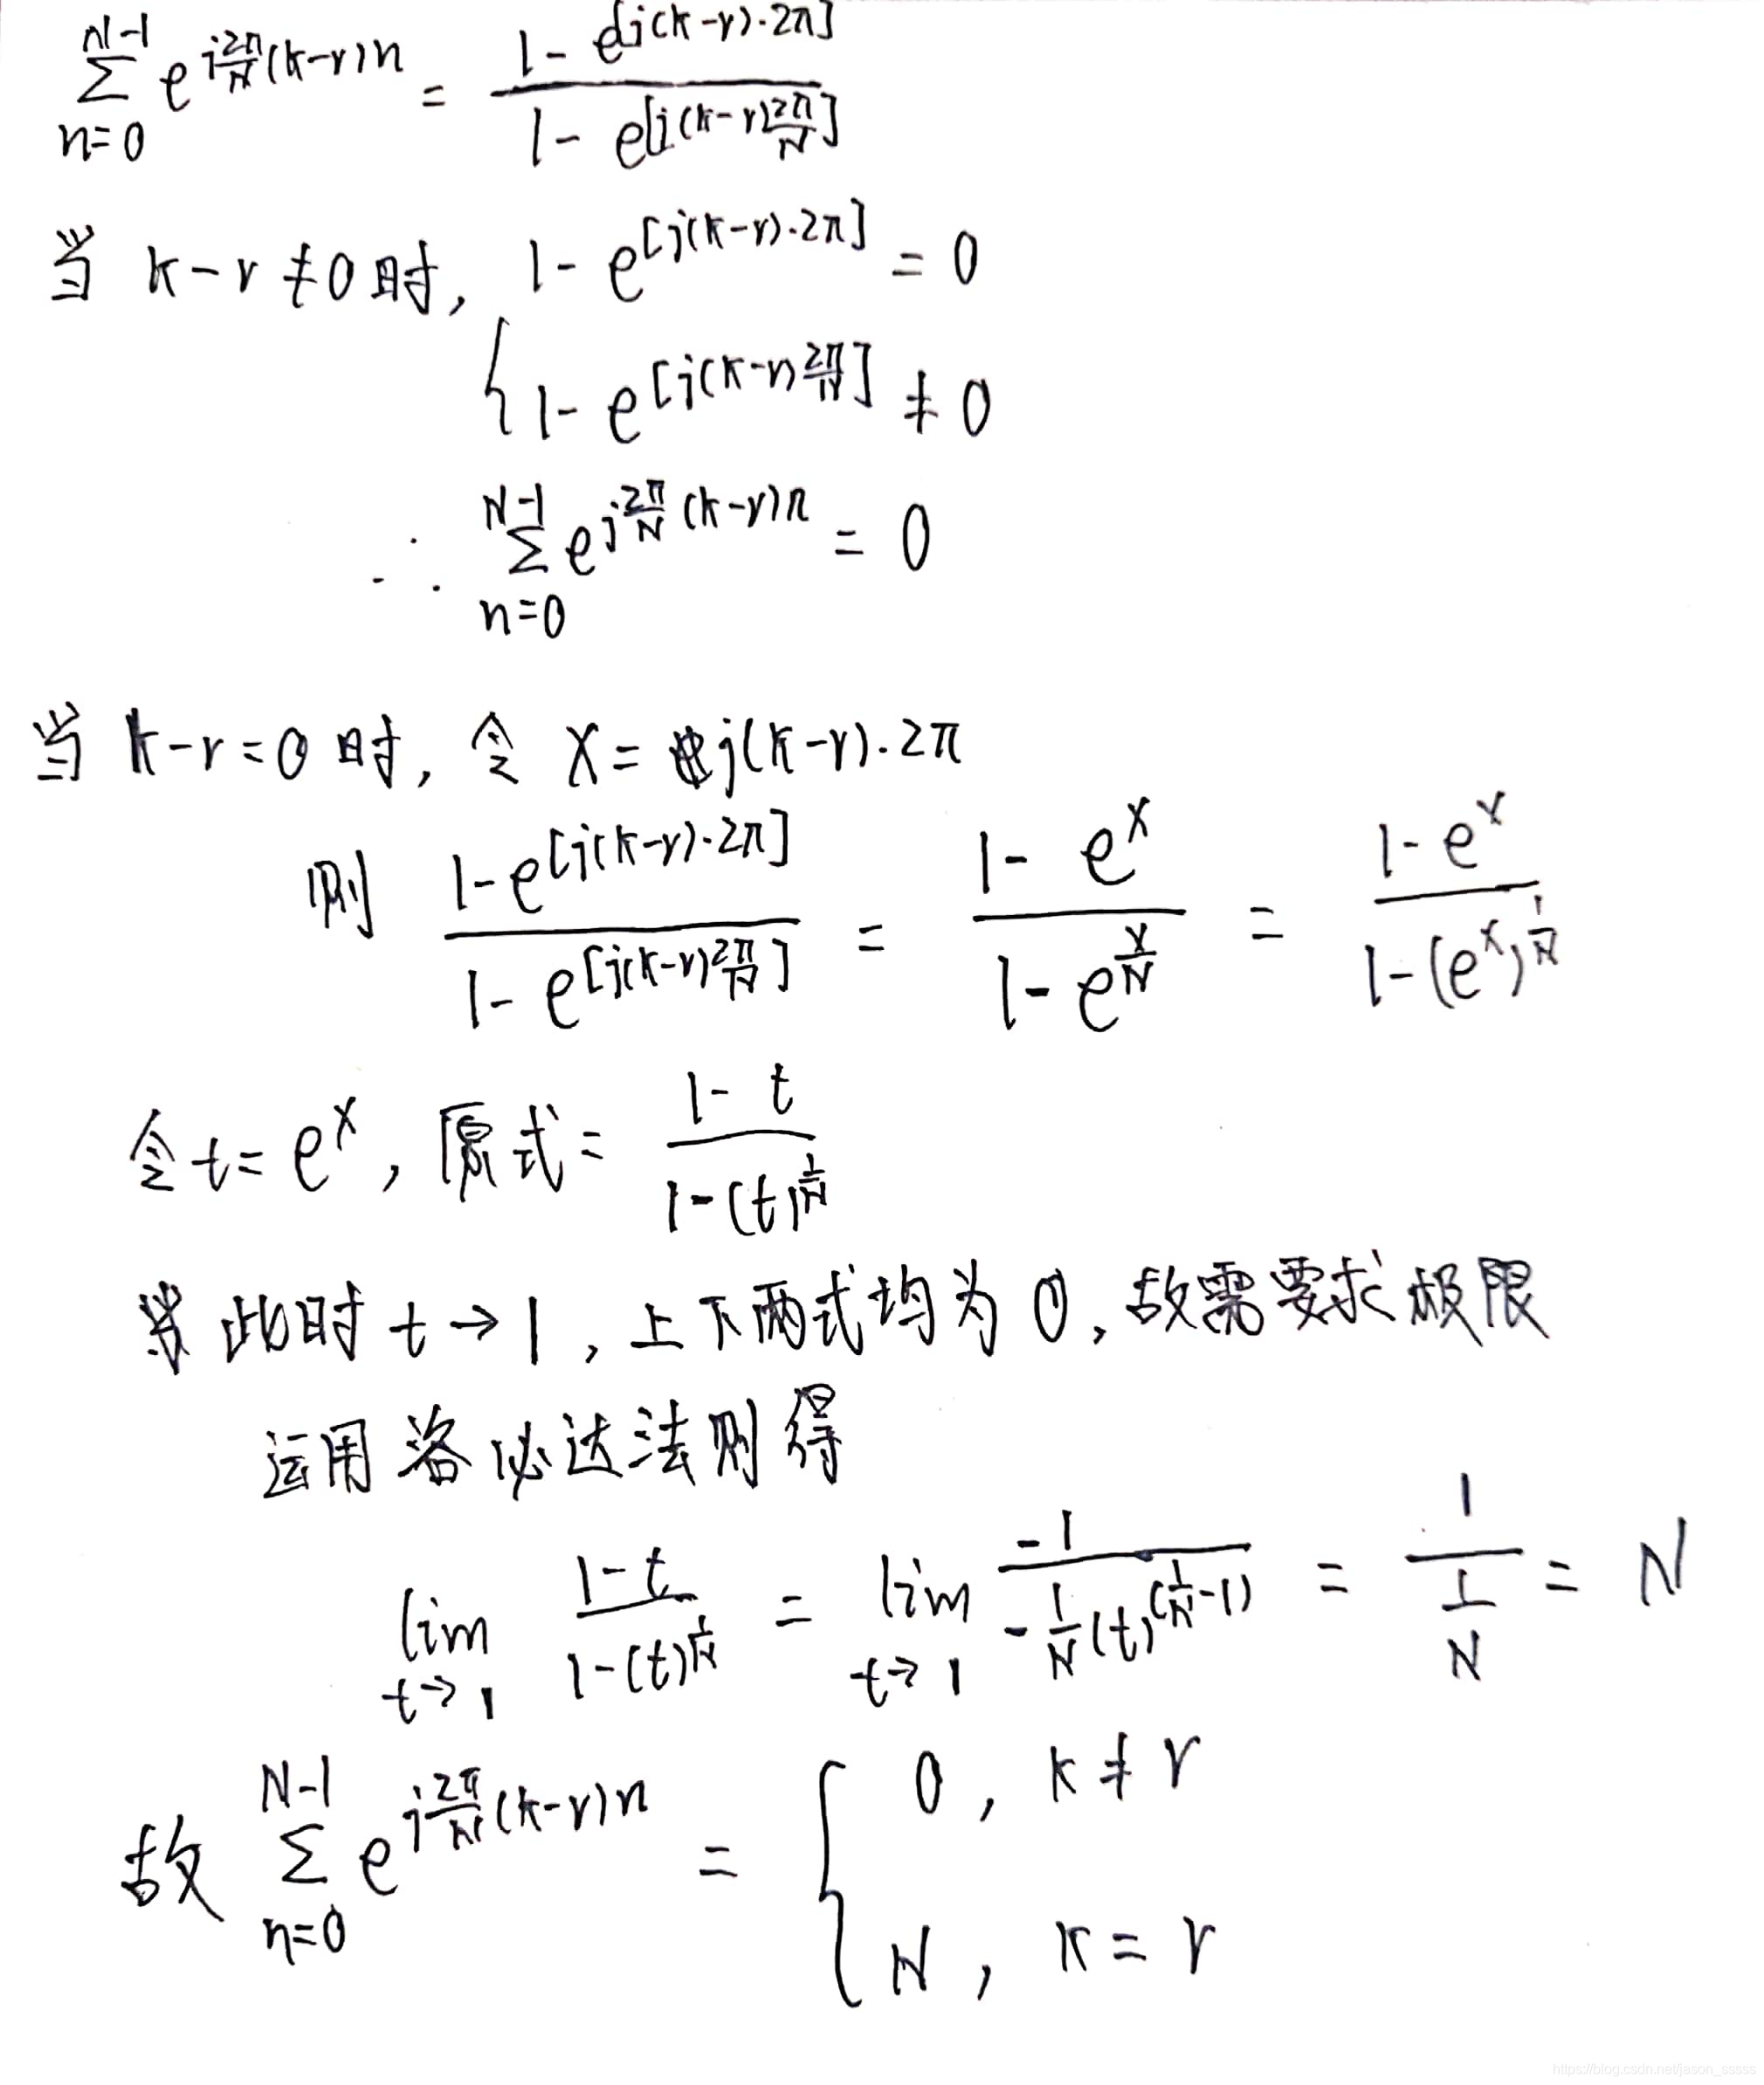 ∑_{n=0}^{N-1} e^{j\frac{2π}{N}(k-r)n} = \frac{1-e^{[j(k-r)·2π]}}{1-e^{[j(k-r)\frac{2π}{N}]}}
当 k-r≠0时, 1-e^{[j(k-r)·2π]} = 0
{ 1-e^{[j(k-r)\frac{2π}{N}]} ≠ 0
∴ ∑_{n=0}^{N-1} e^{j\frac{2π}{N}(k-r)n} = 0
当 k-r=0 时, 令 x = j(k-r)·2π
则 \frac{1-e^{[j(k-r)·2π]}}{1-e^{[j(k-r)\frac{2π}{N}]}} = \frac{1-e^x}{1-e^{\frac{x}{N}}} = \frac{1-e^x}{1-(e^x)^{\frac{1}{N}}}
令 t=e^x, 原式= \frac{1-t}{1-(t)^{\frac{1}{N}}}
此时 t→1, 上下两式均为0, 故需要求极限
运用洛必达法则得
\lim_{t→1} \frac{1-t}{1-(t)^{\frac{1}{N}}} = \lim_{t→1} \frac{-1}{-\frac{1}{N}(t)^{(\frac{1}{N}-1)}} = \frac{1}{\frac{1}{N}} = N
故 ∑_{n=0}^{N-1} e^{j\frac{2π}{N}(k-r)n} = { 0, k≠r
N, k=r
https://blog.csdn.net/jason_sssss